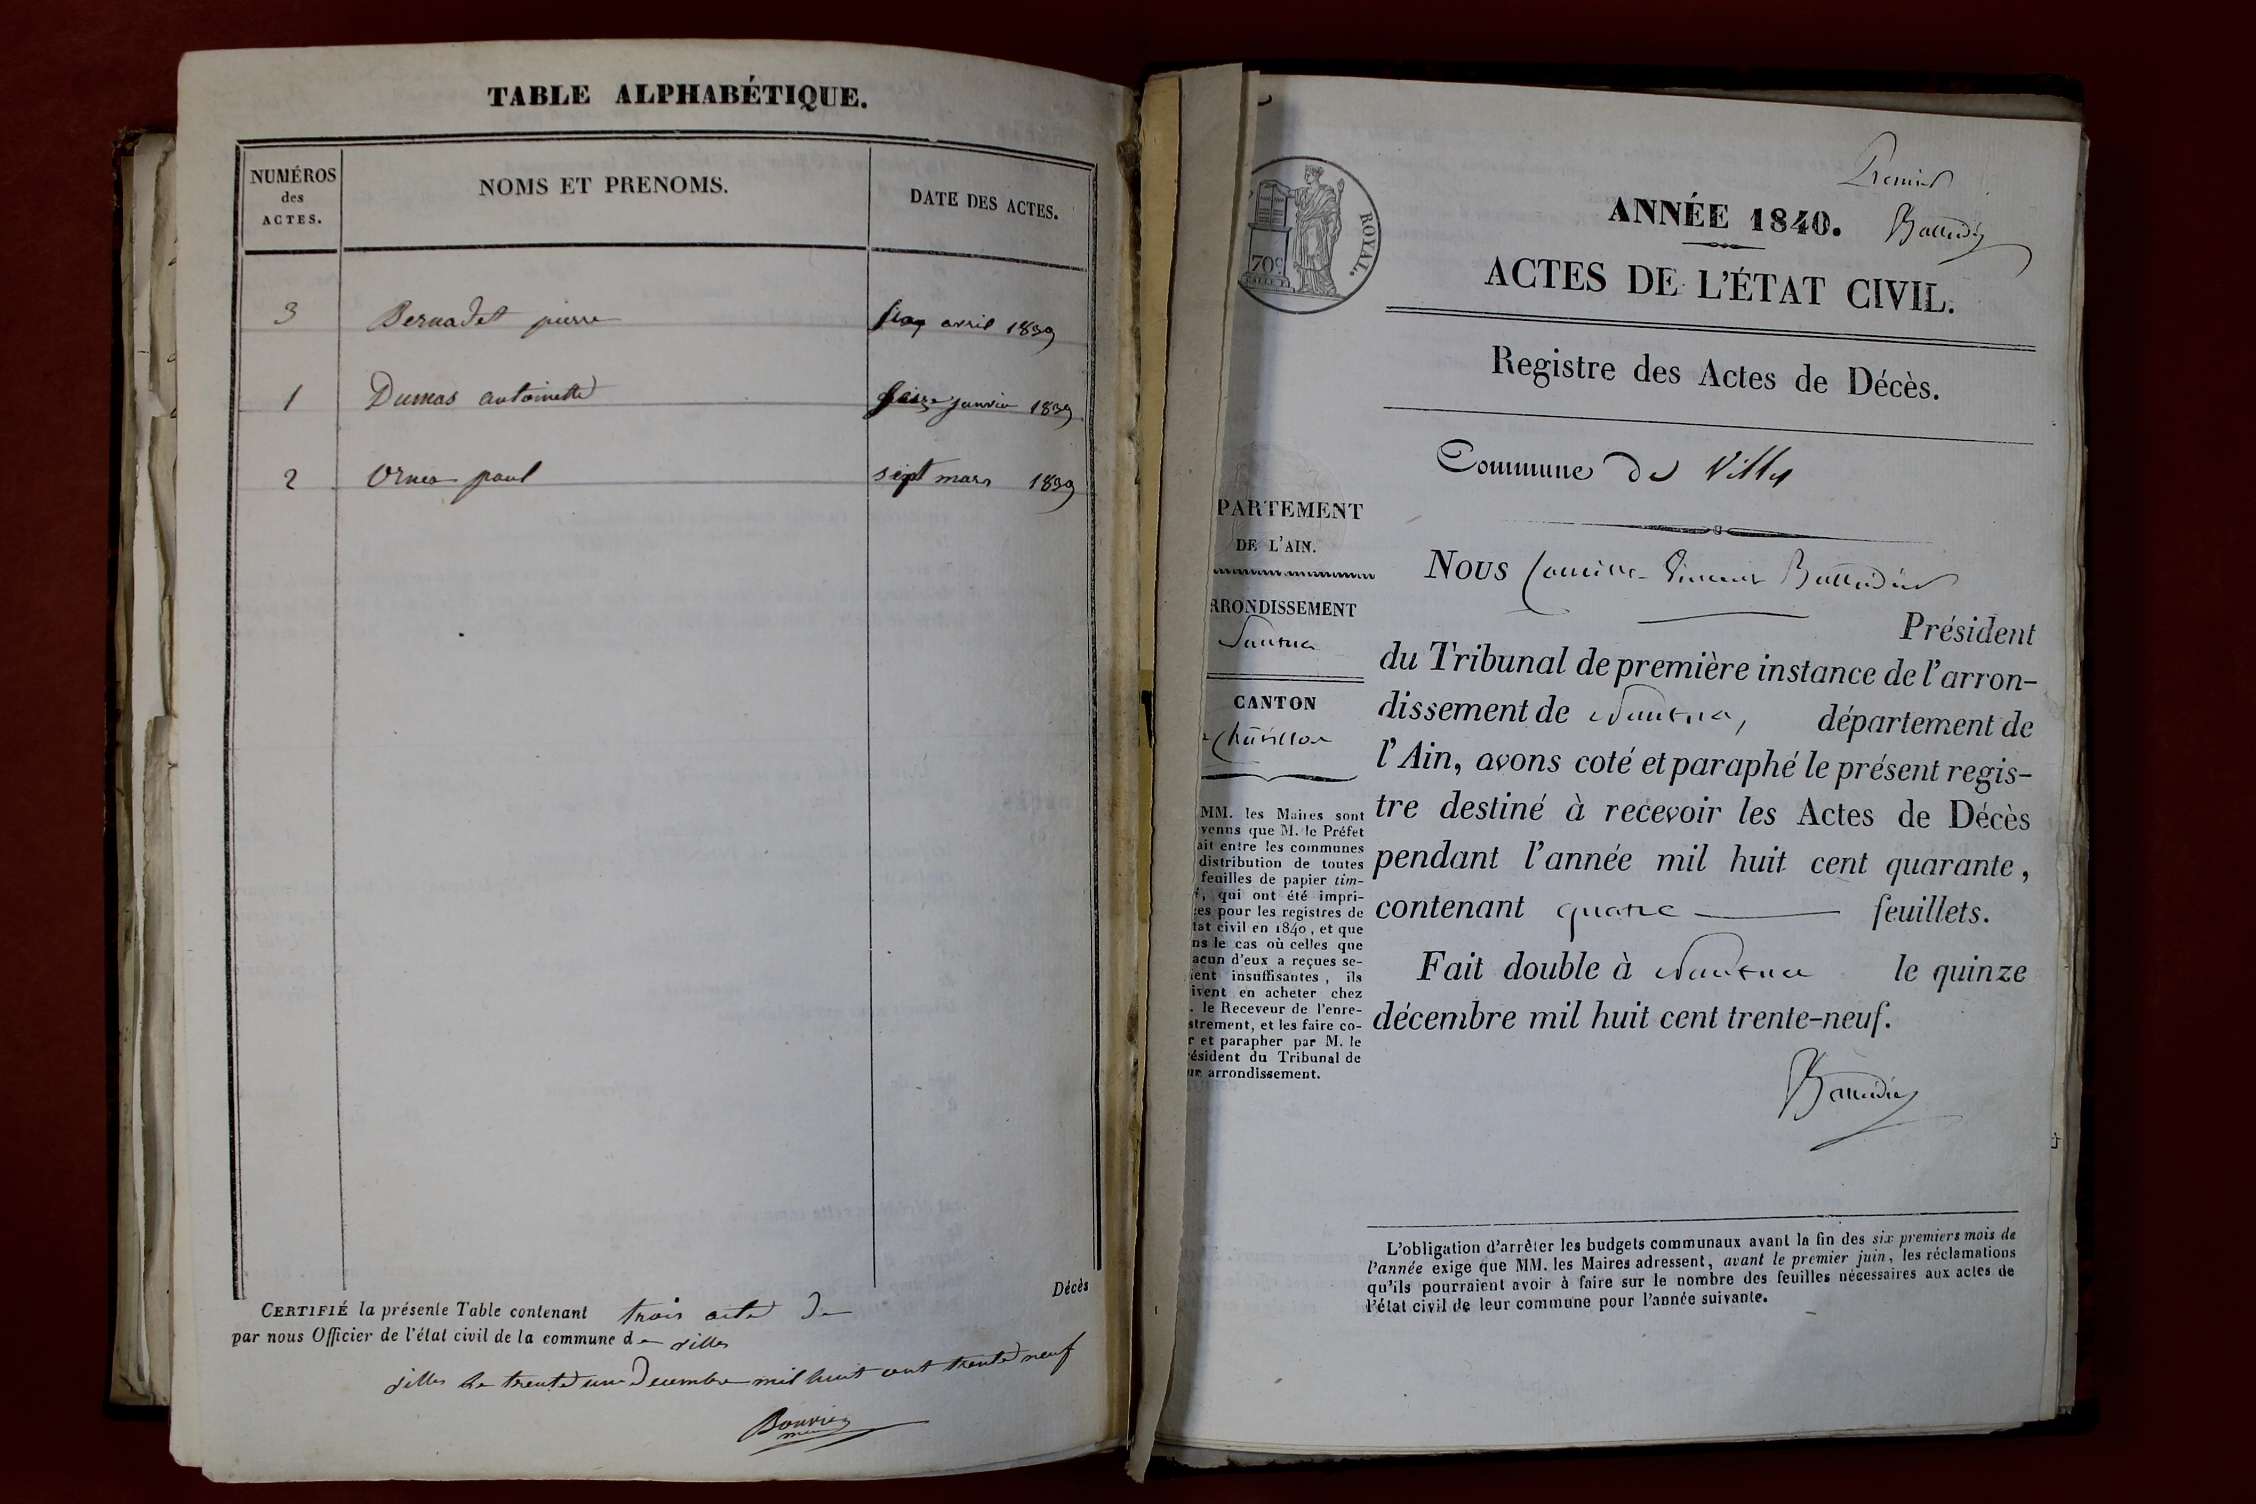 TABLE ALPHABÉTIQUE.
NUMÉROS
des
ACTES.
NOMS ET PRENOMS.
DATE DES ACTES.
3 Bernadet pierre avril 1839
1 Dumas antoinette janvier 1839
2 paul sept mars 1839
Décès
CERTIFIÉ la présente Table contenant trois acte de
par nous Officier de l'état civil de la commune de villes
villes le trente un Decembre mil huit cent trente neuf
Bouvier
Premier
ANNÉE 1840.
ACTES DE L'ÉTAT CIVIL.
ROYAL.
70c
Registre des Actes de Décès.
Commune de Villes
PARTEMENT
DE L'AIN.
RRONDISSEMENT
Nantua
CANTON
Châtillon
MM. les Maires sont
venus que M. le Préfet
ait entre les communes
distribution de toutes
feuilles de papier tim-
, qui ont été impri-
es pour les registres de
tat civil en 1840, et que
ns le cas où celles que
acun d'eux a reçues se-
ient insuffisantes, ils
ivent en acheter chez
. le Receveur de l'enre-
strement, et les faire co-
r et parapher par M. le
ésident du Tribunal de
ur arrondissement.
Nous
Président
du Tribunal de première instance de l'arron-
dissement de Nantua, département de
l'Ain, avons coté et paraphé le présent regis-
tre destiné à recevoir les Actes de Décès
pendant l'année mil huit cent quarante,
contenant quatre feuillets.
Fait double à Nantua le quinze
décembre mil huit cent trente-neuf.
L'obligation d'arrêter les budgets communaux avant la fin des six premiers mois de
l'année exige que MM. les Maires adressent, avant le premier juin, les réclamations
qu'ils pourraient avoir à faire sur le nombre des feuilles nécessaires aux actes de
l'état civil de leur commune pour l'année suivante.